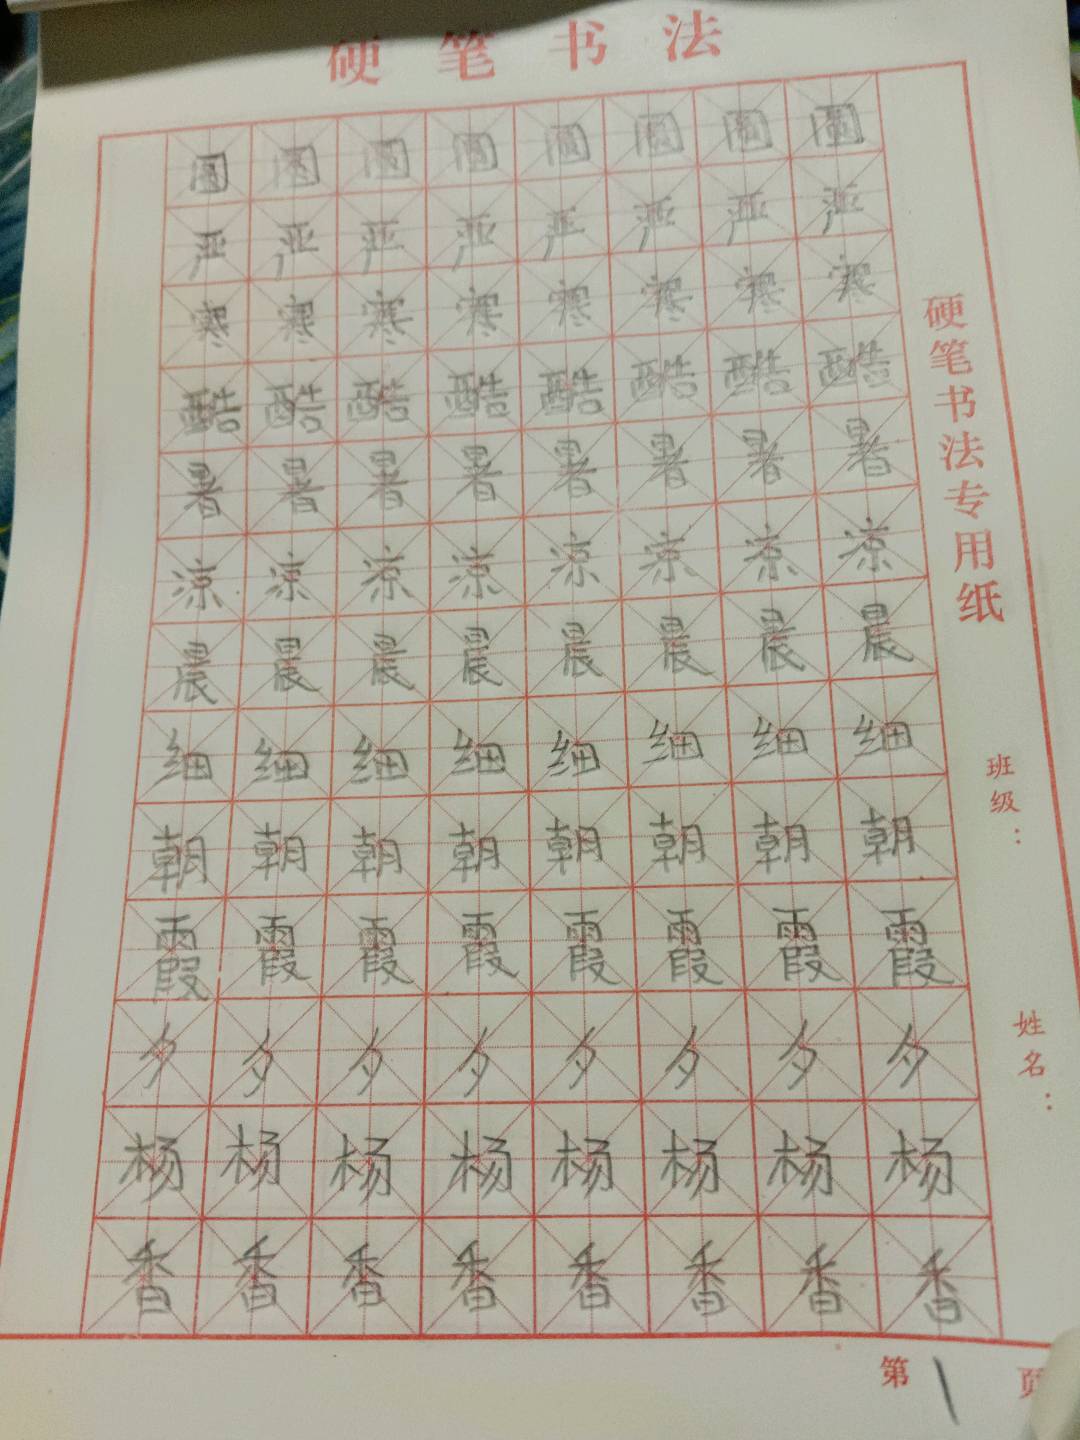 硬笔书法
圆圆圆圆圆圆圆圆
严严严严严严严严
寒寒寒寒寒寒寒寒
酷酷酷酷酷酷酷酷
暑暑暑暑暑暑暑暑
凉凉凉凉凉凉凉凉
晨晨晨晨晨晨晨晨
细细细细细细细细
朝朝朝朝朝朝朝朝
霞霞霞霞霞霞霞霞
夕夕夕夕夕夕夕夕
杨杨杨杨杨杨杨杨
香香香香香香香香
硬笔书法专用纸
班级：
姓名：
第1页